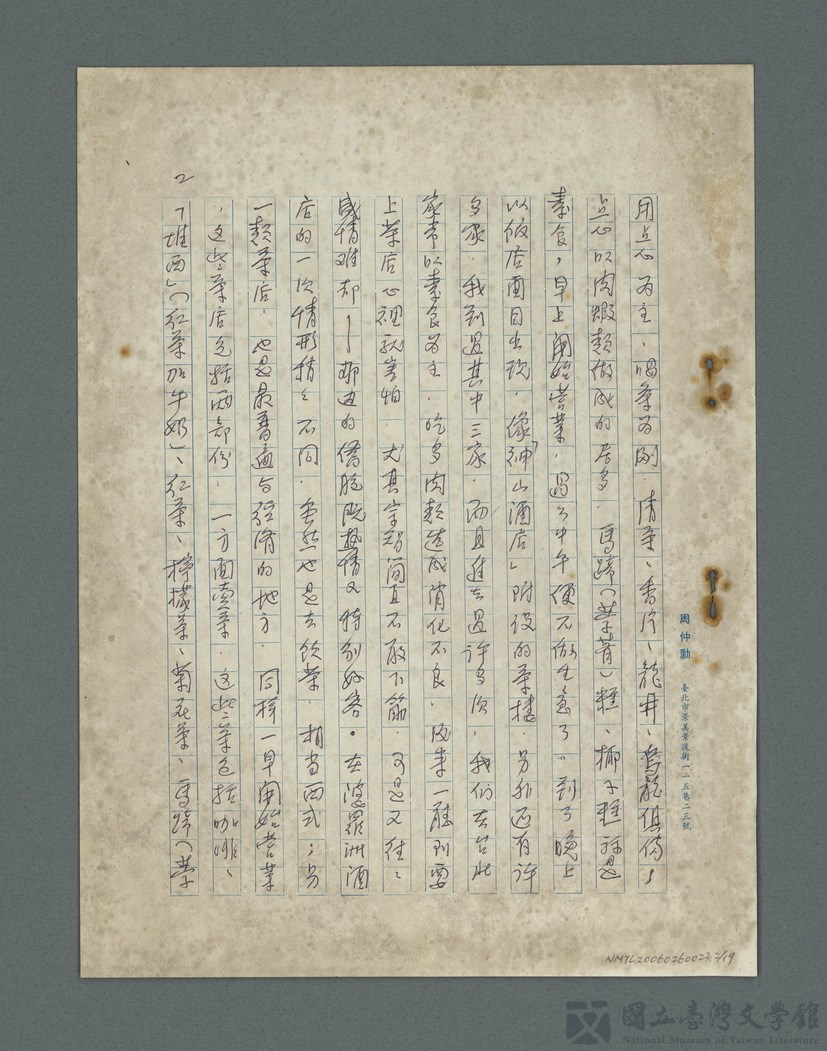 周仲勳　臺北市景美景後街一二五巷二三號
用点心為主，喝茶為副，清茶、香片、龍井、烏龍俱備，
点心以肉蝦類做成的居多，馬蹄（荸薺）糕、椰子糕祇是
素食，早上開始營業，過了中午便不做生意了。到了晚上
以飯店面目出現，像「神山酒店」附設的茶樓，另外还有许
多家，我到過其中三家，而且進去過许多次，我们在台北
家常以素食為主，吃多肉類造成消化不良，後來一聽到要
上茶店心裡就害怕，尤其宗智简直不敢下筯，可是又往往
盛情难却──那边的僑胞既热情又特别好客。在婆羅洲酒
店的一次情形稍稍不同，虽然也是去飲茶，相当西式；另
一類茶店，也是最普遍与经濟的地方，同样一早開始营業
，這些茶店包括两部份，一方面卖茶，這些茶包括咖啡、
「堆西」（红茶加牛奶）、红茶、檸檬茶、菊花茶、馬蹄（荸
2
NMTL20060260023,2/19
國立臺灣文學館
National Museum of Taiwan Literature